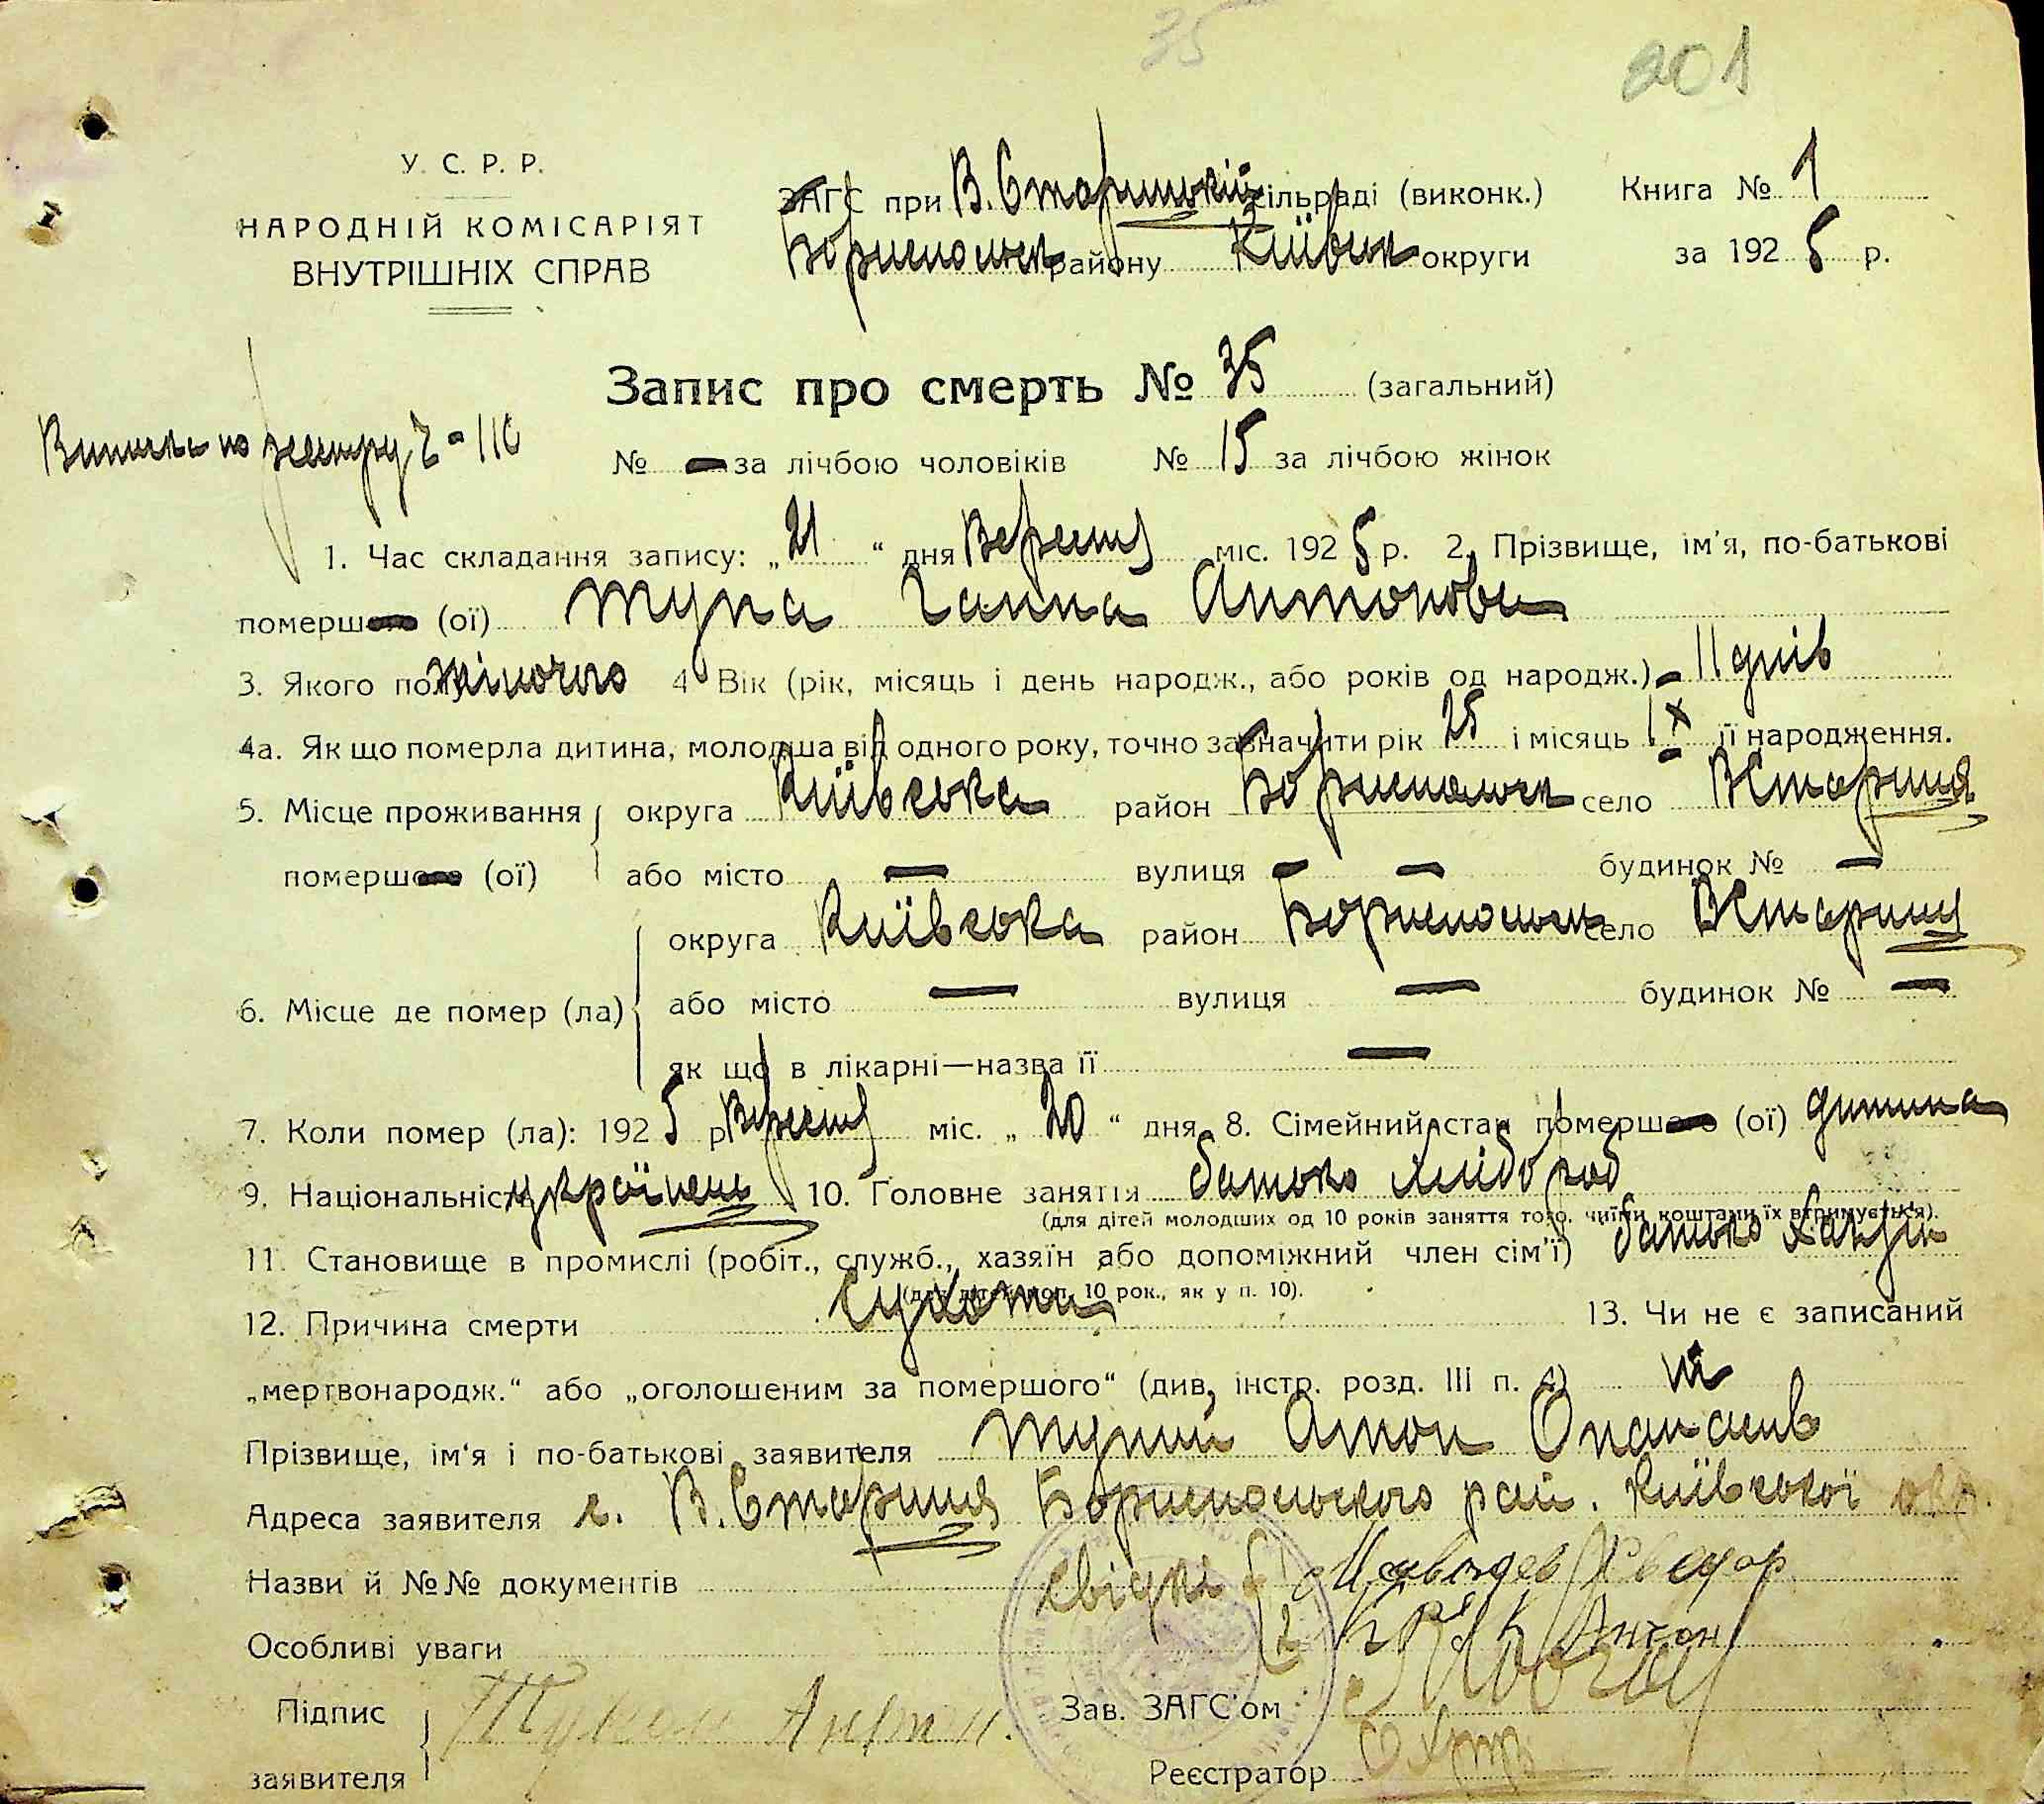 35
201
У. С. Р. Р.
НАРОДНІЙ КОМІСАРІЯТ
ВНУТРІШНІХ СПРАВ
ЗАГС при В. Старицькій сільраді (виконк.) Книга № 1
Бориспольск району Київськ округи за 1925 р.
Запис про смерть № 35 (загальний)
по реєстру
№ — за лічбою чоловіків № 15 за лічбою жінок
1. Час складання запису: „21“ дня Вересня міс. 1925 р. 2. Прізвище, ім'я, по-батькові
померш (ої) Ганна Антонова
3. Якого полу жіночого 4 Вік (рік, місяць і день народж., або років од народж.) - 11 днів
4а. Як що померла дитина, молодша від одного року, точно зазначити рік 25 і місяць IX її народження.
5. Місце проживання округа Київська район Бориспольск село ВСтариця
померш (ої) або місто — вулиця — — будинок № —
округа Київська район Бориспольск село ВСтариця
6. Місце де помер (ла) або місто — вулиця — будинок № —
як що в лікарні—назва її —
7. Коли помер (ла): 1925 р Вересня міс. „20“ дня. 8. Сімейний стан померш (ої) дитина
9. Національність українець 10. Головне заняття батько хлібороб
(для дітей молодших од 10 років заняття того, чиїми коштами їх втримується).
11. Становище в промислі (робіт., служб., хазяїн або допоміжний член сім'ї) батько хазяїн
(для дітей мол. 10 рок., як у п. 10).
12. Причина смерти сухоти 13. Чи не є записаний
„мертвонародж.“ або „оголошеним за помершого“ (див, інстр. розд. III п. 4) ні
Прізвище, ім'я і по-батькові заявителя Антон Опанасів
Адреса заявителя с. В. Стариця Бориспольского рай. Київської окр.
Назви й №№ документів свідкі 1 Хведор
Особливі уваги 2 Антон
Підпис Антон. Зав. ЗАГС'ом
заявителя Реєстратор